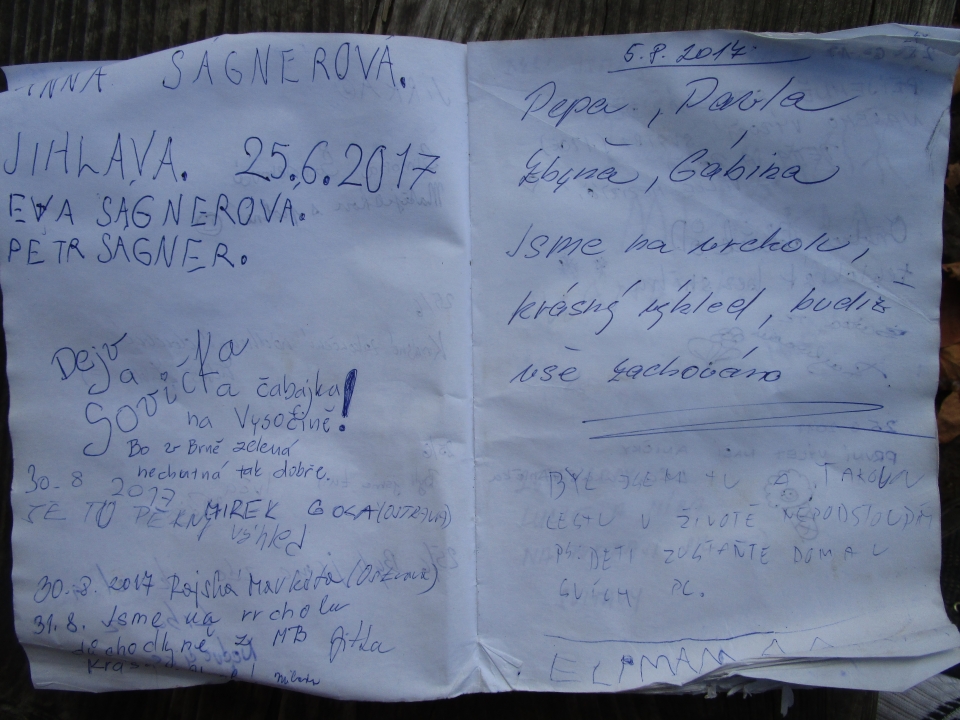 SAGNEROVÁ.
JIHLAVA. 25.6.2017
EVA SAGNEROVA.
PETR SAGNER.
Dejv Na
Ja
Sovičta čabajka
na Vysočině!
Bo v Brně zelená
nechutná tak dobře.
30.8
2017
JE TO PĚKNÝ MIREK GOGA (OSTRAVA)
výhled
30.8.2017 Rajská Markéta (Ostrava)
31.8. Jsme na vrcholu
důchodkyně z MB Jitka
5.8.2017
Pepa, Pavla
Zbyňa, Gábina
Jsme na vrcholu,
krásný výhled, budiž
vše zachováno
BYL JSEM TU A TAKOVU
CESTU V ŽIVOTĚ NEPODSTOUPÍM
PS: DĚTI ZUSTAŇTE DOMA U
SVÝCH PC.